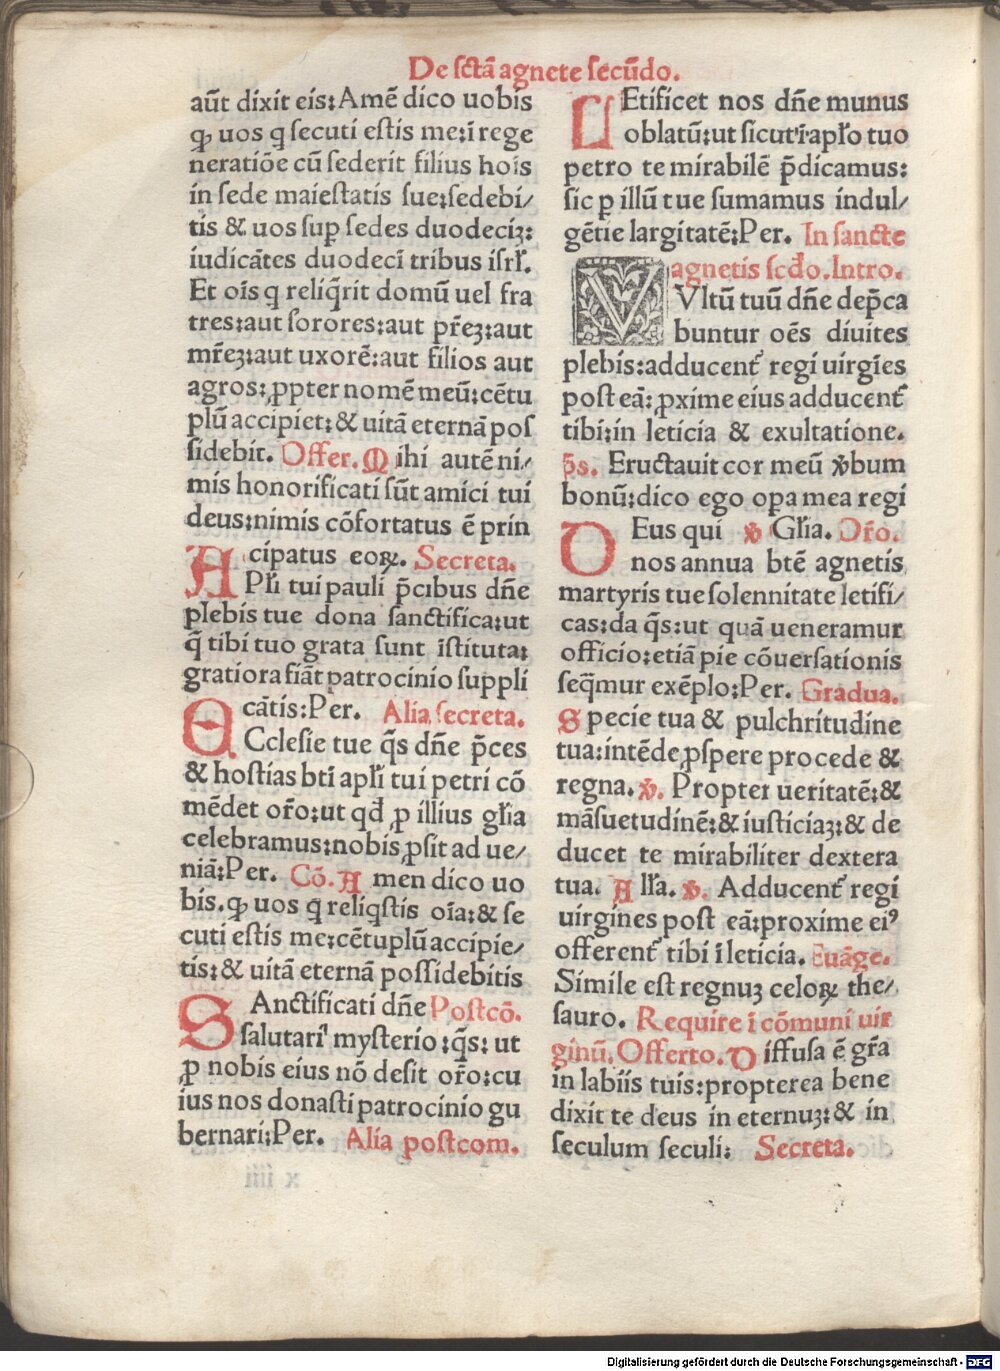 De sctā agnete secūdo.
aūt dixit eis: Amē dico uobis
ꝙ uos q secuti estis me: ī rege
neratiōe cū sederit filius hoīs
in sede maiestatis sue: sedebi/
tis & uos sup sedes duodeciȝ:
iudicātes duodeci tribus isrł.
Et oīs q reliq̄rit domū uel fra
tres: aut sorores: aut pr̄eȝ: aut
mr̄eȝ: aut uxorē: aut filios aut
agros: ꝓpter nomē meū: cētu
plū accipiet: & uitā eternā pos
sidebit. Offer. Mihi autē ni/
mis honorificati sūt amici tui
deus: nimis cōfortatus ē prin
cipatus eoꝝ. Secreta.
APłi tui pauli p̄cibus dn̄e
plebis tue dona sanctifica: ut
q̄ tibi tuo grata sunt īstituta:
gratiora fiāt patrocinio suppli
cātis: Per. Alia secreta.
ECclesie tue q̄s dn̄e p̄ces
& hostias bti apłi tui petri cō
mēdet or̄o: ut qđ ꝓ illius głia
celebramus: nobis ꝓsit ad ue/
niā: Per. Cō. Amen dico uo
bis. ꝙ uos q reliqstis oīa: & se
cuti estis me: cētuplū accipie/
tis: & uitā eternā possidebitis
SAnctificati dn̄e Postcō.
salutari mysterio: q̄s: ut
ꝓ nobis eius nō desit or̄o: cu
ius nos donasti patrocinio gu
bernari: Per. Alia postcom.
LEtificet nos dn̄e munus
oblatū: ut sicut ī apło tuo
petro te mirabilē p̄dicamus:
sic ꝑ illū tue sumamus indul/
gētie largitatē: Per. In sancte
agnetis scđo. Intro.
VVltū tuū dn̄e dep̄ca
buntur oēs diuites
plebis: adducent᷑ regi uirgīes
post eā: ꝓxime eius adducent᷑
tibi: in leticia & exultatione.
p̄s. Eructauit cor meū v̄bum
bonū: dico ego opa mea regi
DEus qui ℣ Głia. Or̄o.
nos annua btē agnetis
martyris tue solennitate letifi/
cas: da q̄s: ut quā ueneramur
officio: etiā pie cōuersationis
seq̄mur exēplo: Per. Gradua.
Specie tua & pulchritudine
tua: intēde ꝓspere procede &
regna. ℣. Propter ueritatē: &
māsuetudinē: & iusticiaȝ: & de
ducet te mirabiliter dextera
tua. Ałła. ℣. Adducent᷑ regi
uirgines post eā: proxime eiꝰ
offerent᷑ tibi ī leticia. Euāge.
Simile est regnuȝ celoꝝ the/
sauro. Require ī cōmuni uir
ginū. Offerto. Diffusa ē gr̄a
in labiis tuis: propterea bene
dixit te deus in eternuȝ: & in
seculum seculi: Secreta.
Digitalisierung gefördert durch die Deutsche Forschungsgemeinschaft - DFG